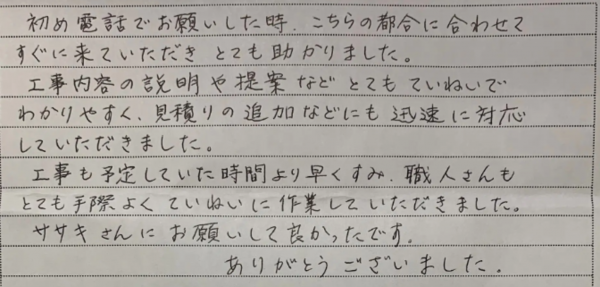 初め電話でお願いした時、こちらの都合に合わせて
すぐに来ていただき とても助かりました。
工事内容の説明や提案など とてもていねいで
わかりやすく、見積りの追加などにも 迅速に対応
していただきました。
工事も予定していた時間より早くすみ、職人さんも
とても手際よく ていねいに作業していただきました。
ササキさんに お願いして良かったです。
ありがとうございました。